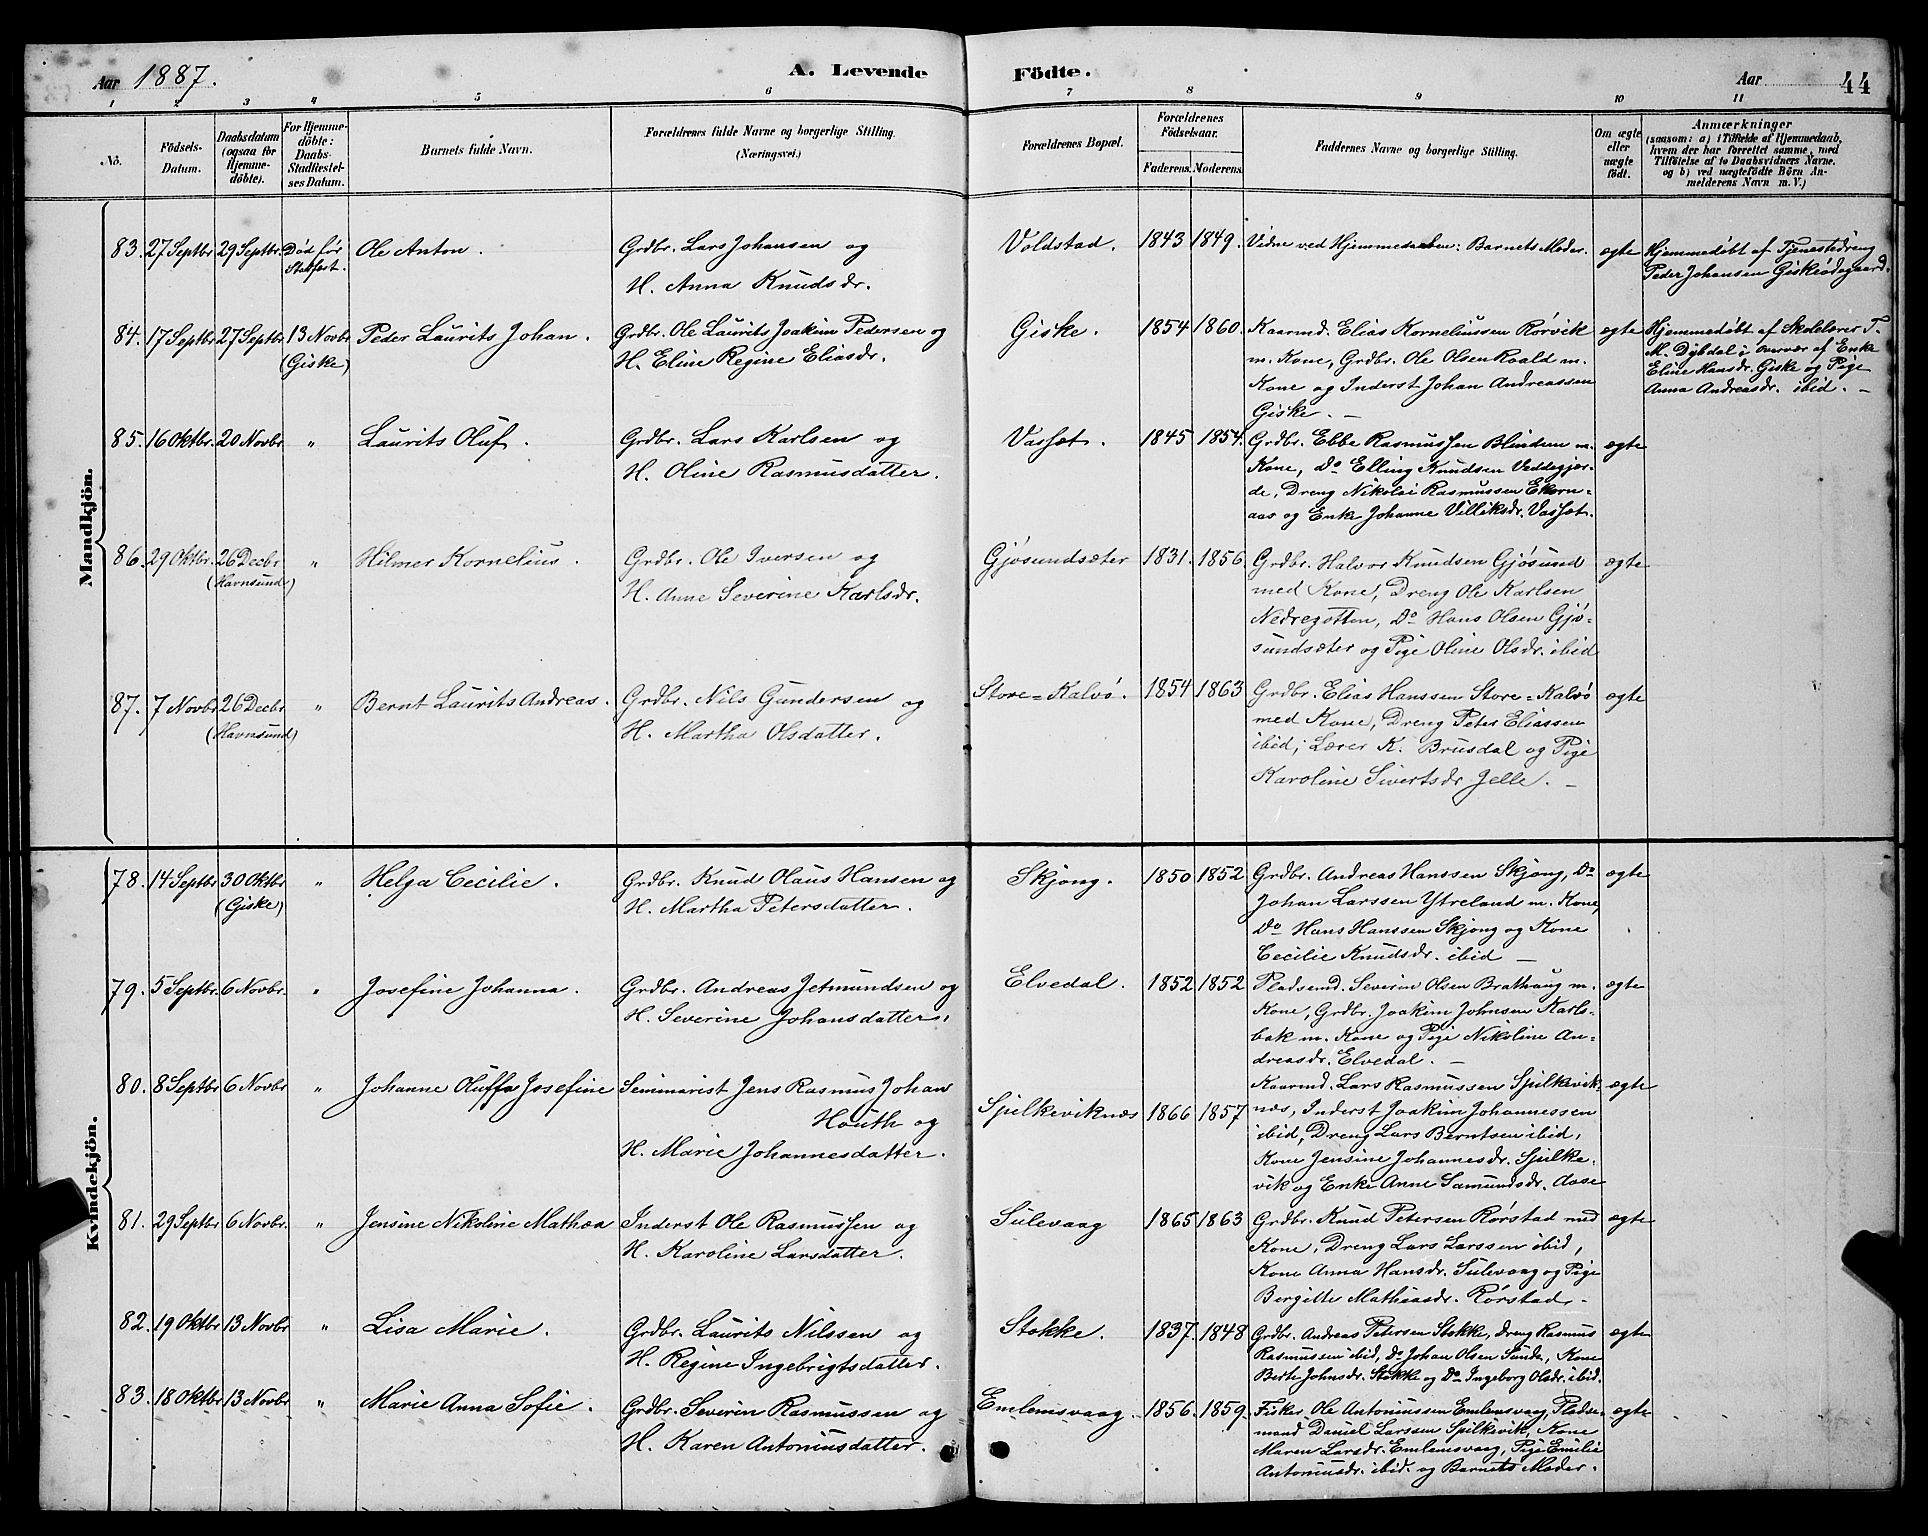 Aar 1887. A. Levende Födte. Aar 44
1 2 3 4 5 6 7 8 9 10 11
No.
Födsels-Datum.
Daabsdatum (ogsaa for Hjemme-döbte).
For Hjemme-döbte: Daabs-Stadfæstel-ses Datum.
Barnets fulde Navn.
Forældrenes fulde Navne og borgerlige Stilling.
(Næringsvei.)
Forældrenes Bopæl.
Forældrenes Födselsaar.
Faderens. Moderens.
Faddernes Navne og borgerlige Stilling.
Om ægte eller uægte födt.
Anmærkninger
(saasom: a) i Tilfælde af Hjemmedaab,
hvem der har forrettet samme, med
Tilföielse af to Daabsvidners Navne.
og b) ved uægtefödte Börn An-
melderens Navn m. V.)
Mandkjön.
83. 27 Septbr 29 Septbr. Död för Stadfæst. Ole Anton. Grdbr. Lars Johansen og
H. Anna Knudsdr.
Voldstad. 1843 1849. Vidne ved Hjemmedaaben: Barnets Moder. ægte
Hjemmedöbt af Tjenestedreng
Peder Johansen Giskeödegaard.
84. 17 Septbr 27 Septbr 13 Novbr (Giske) Peder Laurits Johan. Grdbr. Ole Laurits Joakim Pedersen og
H. Eline Regine Eliasdr.
Giske. 1854 1860. Kaarmd. Elias Korneliussen Rörvik ægte
m. Kone, Grdbr. Ole Olsen Roald m.
Kone og Inderst Johan Andreassen
Giske. —
Hjemmedöbt af Skolelærer T.
M. Dybdal i overvær af Enke
Eline Hansdr. Giske og Pige
Anna Andreasdr. ibid. —
85. 16 Oktbr. 20 Novbr " Laurits Oluf. Grdbr. Lars Karlsen og
H. Oline Rasmusdatter.
Vasset. 1845 1854. Grdbr. Ebbe Rasmussen Blindem m. ægte
Kone, Do Elling Knudsen Veddegjer-
de, Dreng Nikolai Rasmussen Ekorn-
aas og Enke Johanne Villiksdr. Vasset.
86. 29 Oktbr. 26 Decbr (Havnsund) " Hilmer Kornelius. Grdbr. Ole Iversen og
H. Anne Severine Karlsdr.
Gjösundsæter 1831. 1856. Grdbr. Halvor Knudsen Gjösund ægte
med Kone, Dreng Ole Karlsen
Nedregotten, Do Hans Olsen Gjö-
sundsæter og Pige Oline Olsdr. ibid
87. 7 Novbr 26 Decbr (Havnsund) " Bernt Laurits Andreas. Grdbr. Nils Gundersen og
H. Martha Olsdatter.
Store-Kalvö. 1854 1863 Grdbr. Elias Hanssen Store-Kalvö ægte
med Kone, Dreng Peter Eliassen
ibid, Lærer K. Brusdal og Pige
Karoline Sivertsdr Jelle. —
Kvindekjön.
78. 14 Septbr 30 Oktbr (Giske) " Helga Cecilie. Grdbr. Knud Olaus Hansen og
H. Martha Petersdatter.
Skjong. 1850 1852 Grdbr. Andreas Hanssen Skjong, Do ægte
Johan Larssen Ytreland m. Kone,
Do Hans Hanssen Skjong og Kone
Cecilie Knudsdr. ibid —
79. 5 Septbr. 6 Novbr. " Josefine Johanna. Grdbr. Andreas Jetmundsen og
H. Severine Johansdatter.
Elvedal. 1852 1852 Pladsemd. Severin Olsen Brathaug m. ægte
Kone, Grdbr. Joakim Johnsen Karls-
bak m. Kone og Pige Nikoline An-
dreasdr. Elvedal. —
80. 8 Septbr 6 Novbr " Johanne Oluffa Josefine Seminarist Jens Rasmus Johan
Houth og
H. Marie Johannesdatter.
Spilkeviknæs 1866 1857 Kaarmd. Lars Rasmussen Spilkevik- ægte
næs, Inderst Joakim Johannessen
ibid, Dreng Lars Berntsen ibid,
Kone Jensine Johannesdr. Spilke-
vik og Enke Anne Samundsdr. Aase
81. 29 Septbr 6 Novbr. " Jensine Nikoline Mathea Inderst Ole Rasmussen og
H. Karoline Larsdatter.
Sulevaag 1865 1863 Grdbr. Knud Petersen Rörstad med ægte
Kone, Dreng Lars Larssen ibid,
Kone Anna Hansdr. Sulevaag og Pige
Bergitte Mathiasdr. Rörstad. —
82. 19 Oktbr 13 Novbr " Lisa Marie. Grdbr. Laurits Nilssen og
H. Regine Ingebrigtsdatter.
Stokke. 1837. 1848 Grdbr. Andreas Petersen Stokke, dreng Rasmus ægte
Rasmussen ibid, Do Johan Olsen Sunde, Kone
Berte Johnsdr. Stokke og Do Ingeborg Olsdr. ibid.
83. 18 Oktbr 13 Novbr " Marie Anna Sofie. Grdbr. Severin Rasmussen og
H. Karen Antoniusdatter.
Emlemsvaag. 1856. 1859. Fisker Ole Antoniussen Emlemsvaag, Pladse- ægte
mand Daniel Larssen Spilkevik, Kone
Maren Larsdr. Emlemsvaag, Pige Emilie
Antoniusdr. ibid. og Barnets Moder.